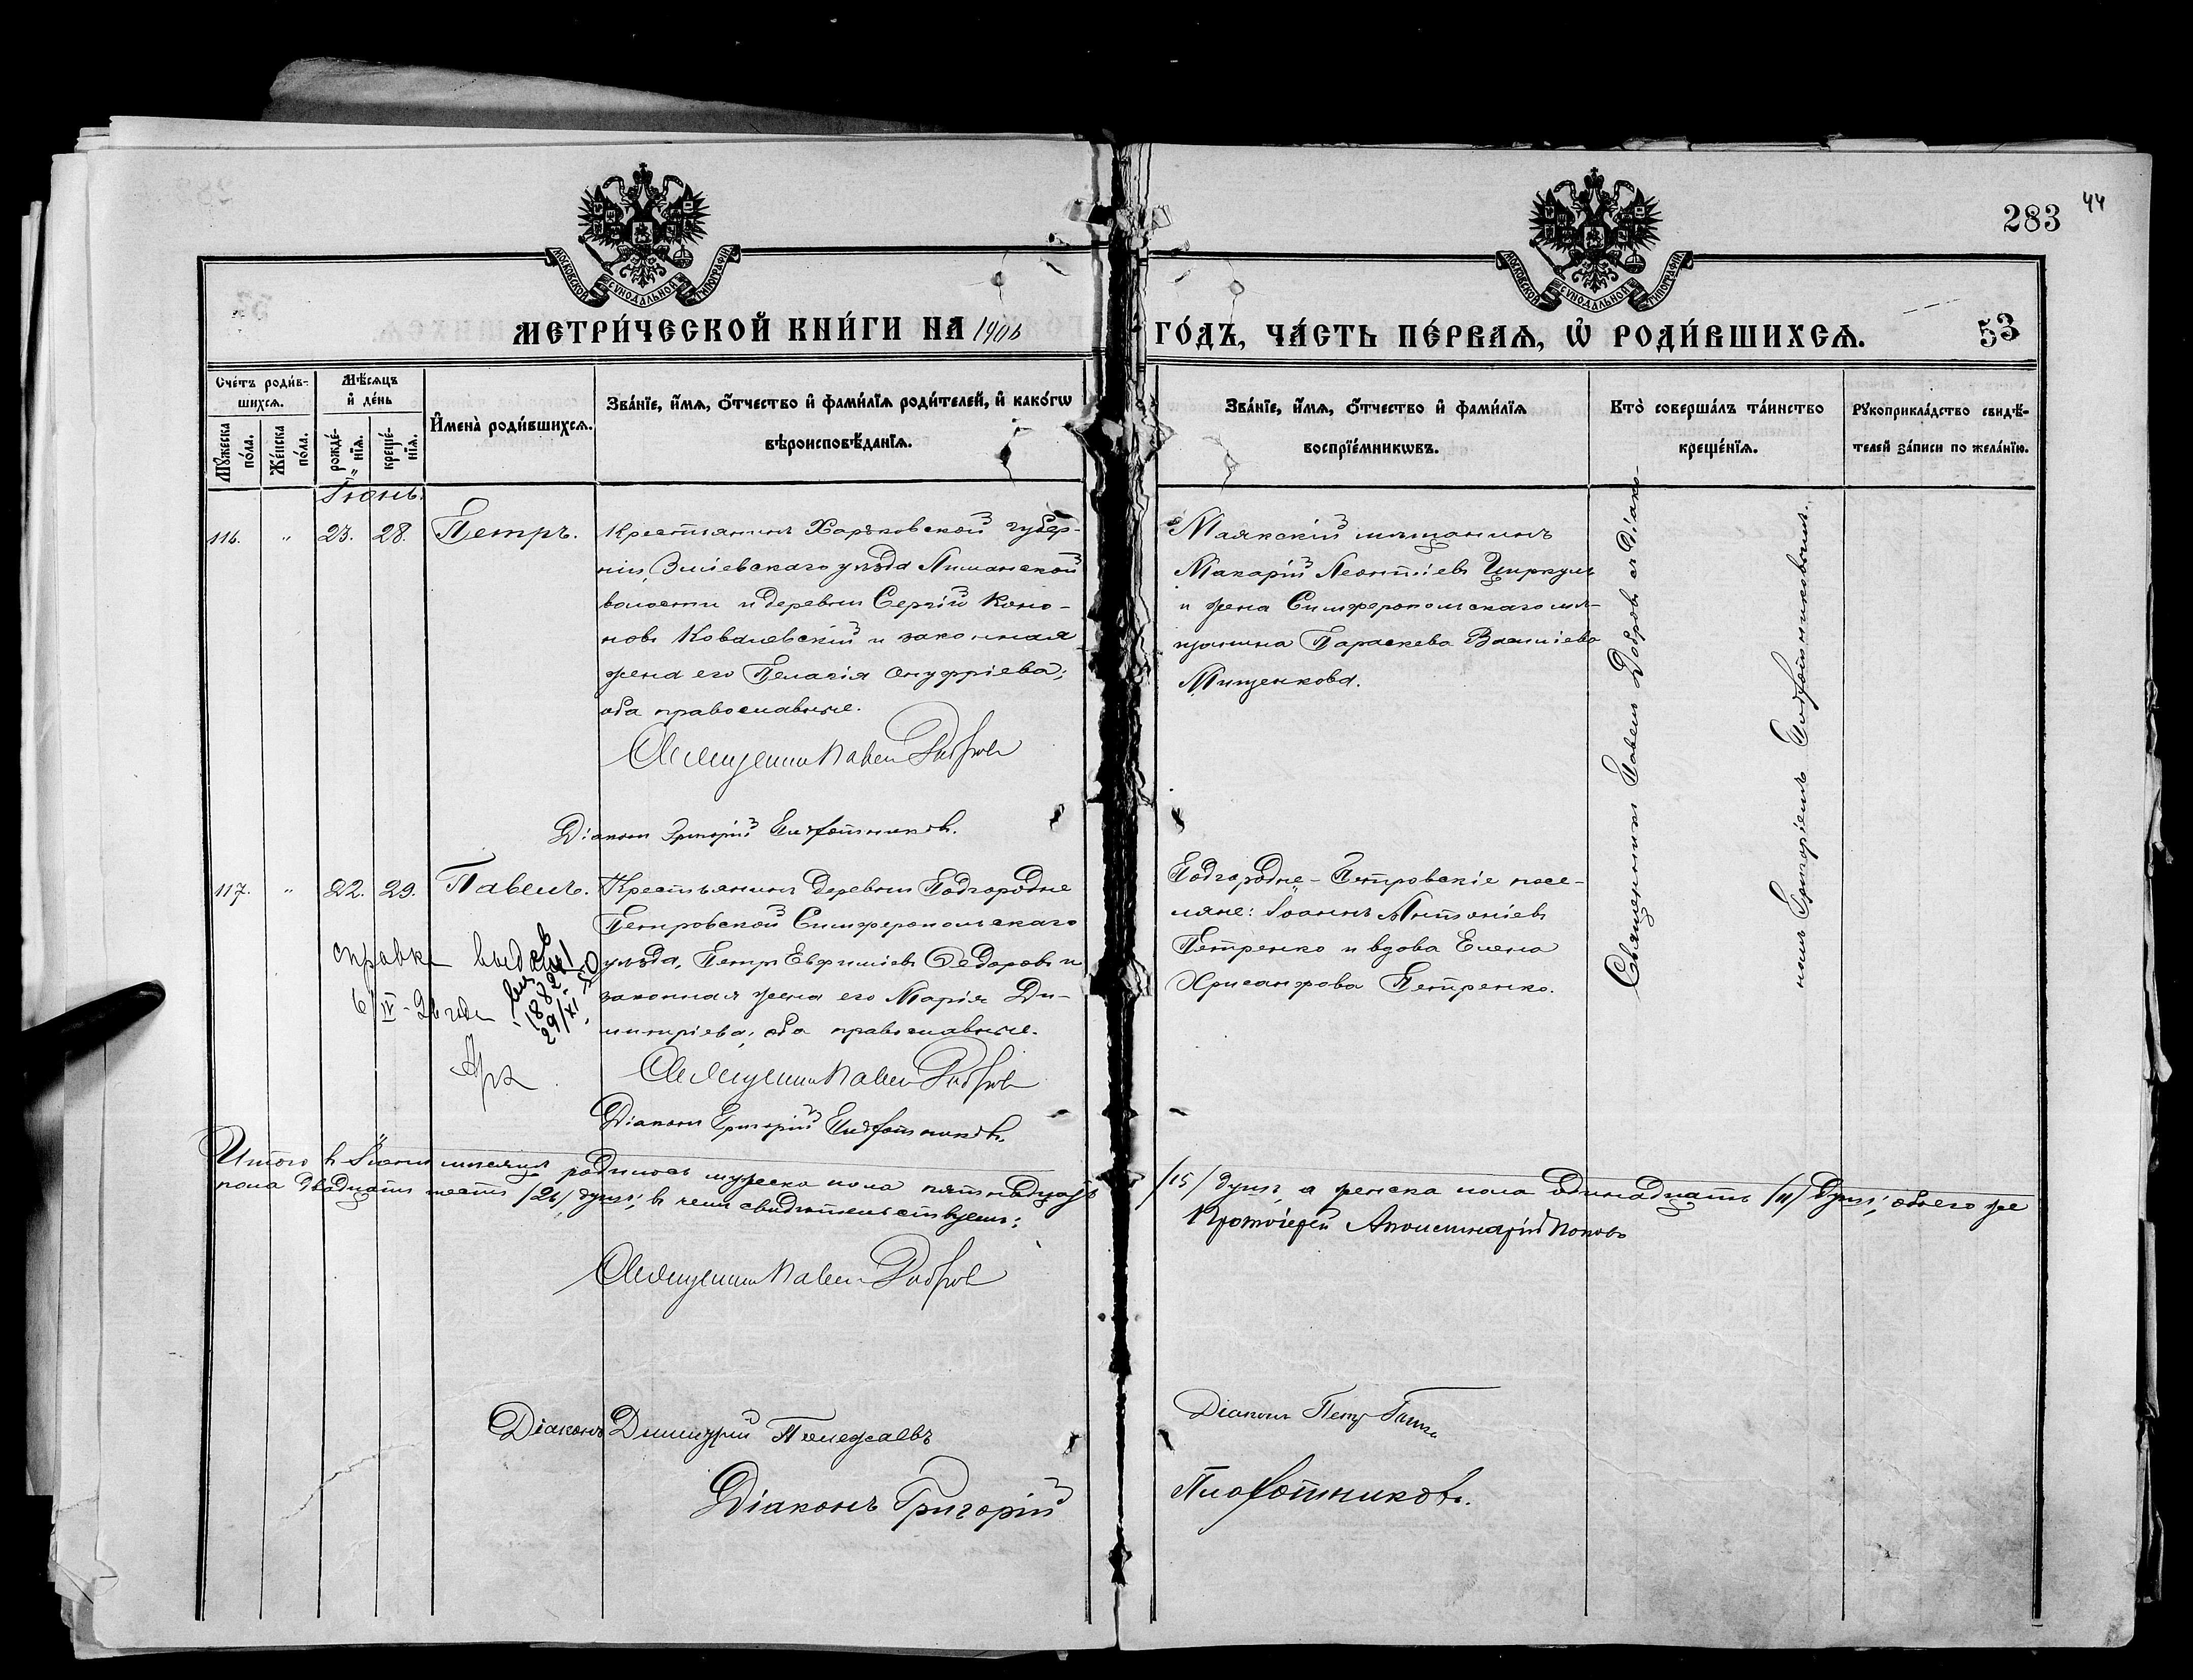 283 44
МОСКОВСКОЙ СѴНОДАЛЬНОЙ ТИПОГРАФІИ
МОСКОВСКОЙ СѴНОДАЛЬНОЙ ТИПОГРАФІИ
МЕТРИ́ЧЕСКОЙ КНИ́ГИ НА 1906 ГО́ДЪ, ЧА́СТЬ ПЕ́РВАѦ, Ѡ҆ РОДИ́ВШИХСѦ. 53
Сче́тъ роди́в-
шихсѧ.
Мꙋ́жеска по́ла.
Же́нска по́ла.
Мѣ́сѧцъ
и҆ де́нь
рожде́-
нїѧ.
креще́-
нїѧ.
И҆мена̀ роди́вшихсѧ.
Зва́нїе, и҆́мѧ, ѻ҆́тчество и҆ фами́лїѧ роди́телей, и҆ како́гѡ
вѣроисповѣ́данїѧ.
Зва́нїе, и҆́мѧ, ѻ҆́тчество и҆ фами́лїѧ
воспрїе́мникѡвъ.
Кто̀ соверша́лъ та́инство
креще́нїѧ.
Рꙋкоприкла́дство свидѣ́-
телей за́писи по жела́нїю.
Іюнь.
116. " 23. 28. Петръ.
Крестьянинъ Харьковской губер-
ніи, Зміевскаго уѣзда Лиманской
волости и деревни Сергій Коно-
новъ Ковалевскій и законная
жена его Пелагія Онуфріева;
оба православные.
Священникъ Павелъ Добровъ
Діаконъ Григорій Плохотниковъ.
Маякскій мѣщанинъ
Макарій Леонтіевъ Циркулъ
и жена Симферопольскаго мѣ-
щанина Параскева Васильева
Мищенкова.
Священникъ Павелъ Добровъ съ Діако-
номъ Григоріемъ Плохотниковымъ.
117. " 22. 29. Павелъ.
Крестьянинъ деревни Подгородне
Петровской Симферопольскаго
уѣзда, Петръ Евфиміевъ Ѳедоровъ и
законная жена его Марія Ди-
митріева; оба православные.
Священникъ Павелъ Добровъ
Діаконъ Григорій Плохотниковъ.
справка выдана
6/IV-26 года
1882
29/XI
Подгородне-Петровскіе посе-
ляне: Іоаннъ Антоніевъ
Петренко и вдова Елена
Хрисанфова Петренко.
Итого въ Іюнѣ мѣсяцѣ родилось мужеска пола пятнадцать /15/ душъ, а женска пола одинадцать /11/ душъ; обоего же
пола двадцать шесть /26/ душъ; въ чемъ свидѣтельствуемъ:
Протоіерей Аполлинарій Поповъ
Священникъ Павелъ Добровъ
Діаконъ Димитрій
Діаконъ Петръ
Діаконъ Григорій Плохотниковъ.